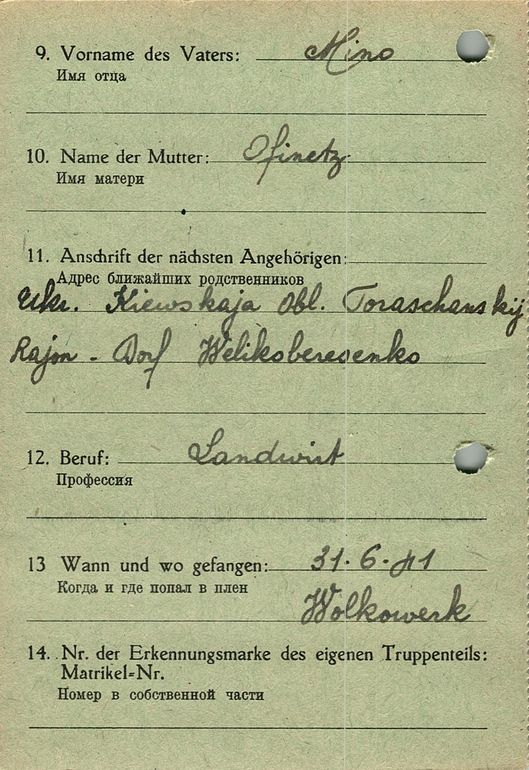 9. Vorname des Vaters: Mino
Имя отца
10. Name der Mutter: Ofinetz
Имя матери
11. Anschrift der nächsten Angehörigen:
Адрес ближайших родственников
Ukr. Kiewskaja Obl. Toraschanskij
Rajon - Dorf Welikoberesenko
12. Beruf: Landwirt
Профессия
13 Wann und wo gefangen: 31.6.41
Когда и где попал в плен
Wolkowerk
14. Nr. der Erkennungsmarke des eigenen Truppenteils:
Matrikel-Nr.
Номер в собственной части